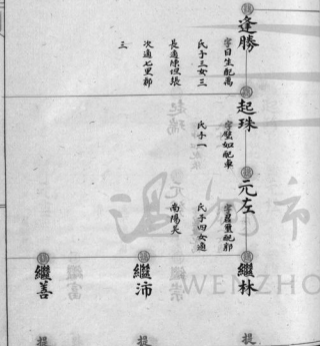 逢勝
字日生配萬
氏子三女三
長適陳坦張
次適七里鄭
三
起珠
字蟹如配車
氏子一
元左
字君重配鄭
氏子四女適
南陽吳
繼林
繼沛
繼善
提
提
提
WENZHO